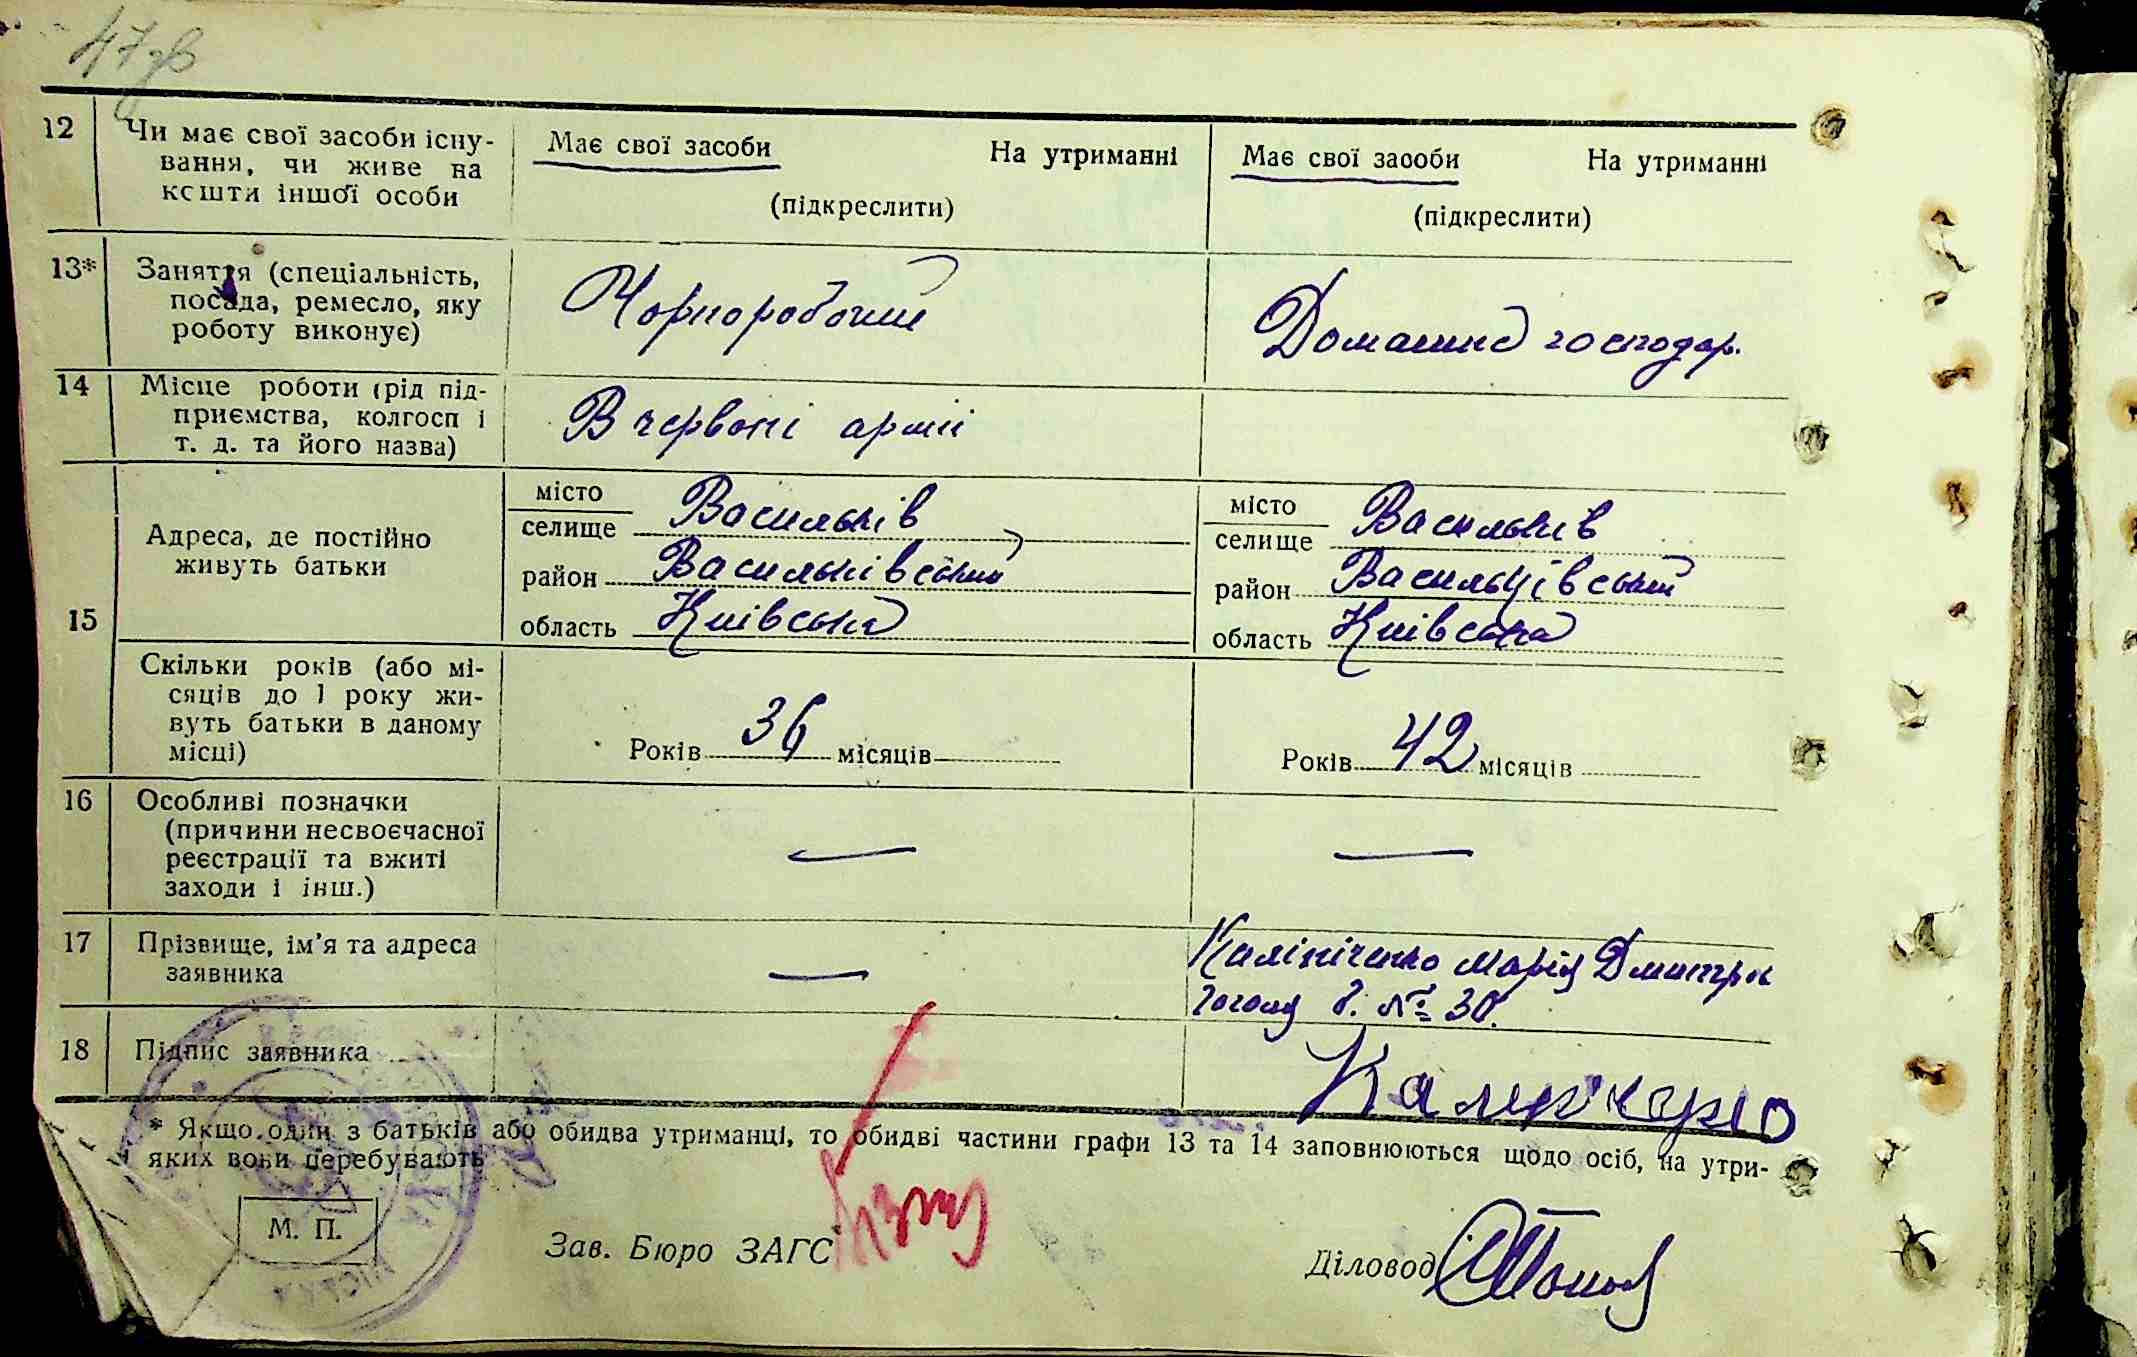 47зв
12 Чи має свої засоби існу-
вання, чи живе на
кошти іншої особи
Має свої засоби На утриманні
(підкреслити)
Має свої засоби На утриманні
(підкреслити)
13* Заняття (спеціальність,
посада, ремесло, яку
роботу виконує)
Чорноробочий
Домашнє господар.
14 Місце роботи (рід під-
приємства, колгосп і
т. д. та його назва)
В червоні армії
15 Адреса, де постійно
живуть батьки
місто
селище Васильків
район Васильківський
область Київська
місто
селище Васильків
район Васильківський
область Київська
Скільки років (або мі-
сяців до 1 року жи-
вуть батьки в даному
місці)
Років 36 місяців
Років 42 місяців
16 Особливі позначки
(причини несвоєчасної
реєстрації та вжиті
заходи і інш.)
— —
17 Прізвище, ім’я та адреса
заявника
—
Калініченко Марія Дмитрів
Гоголя б. № 30.
18 Підпис заявника
* Якщо один з батьків або обидва утриманці, то обидві частини графи 13 та 14 заповнюються щодо осіб, на утри-
яких вони перебувають
М. П.
Зав. Бюро ЗАГС
Діловод